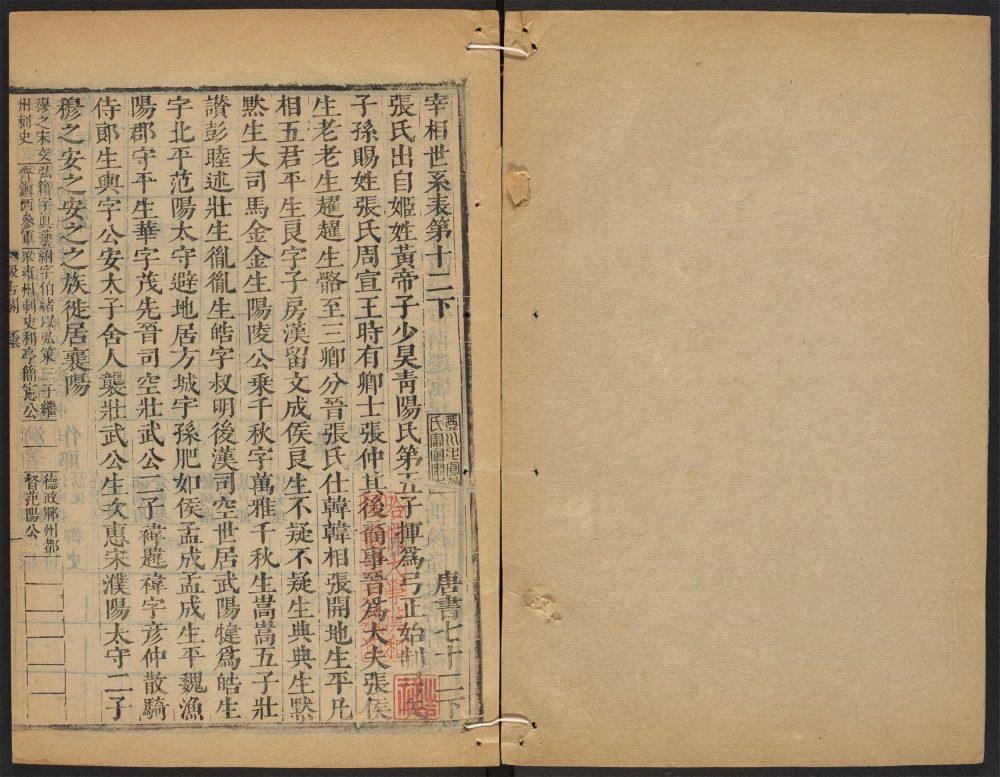 宰相世系表第十二下　唐書七十二下
張氏出自姬姓黃帝子少昊青陽氏第五子揮為弓正始制
子孫賜姓張氏周宣王時有卿士張仲其後裔事晉為大夫張侯
生老老生趯趯生骼至三卿分晉張氏仕韓韓相張開地生平凡
相五君平生良字子房漢留文成侯良生不疑不疑生典典生默
默生大司馬金金生陽陵公乘千秋字萬雅千秋生嵩嵩五子壯
讃彭睦述壯生胤胤生皓字叔明後漢司空世居武陽犍為皓生
宇北平范陽太守避地居方城宇孫肥如侯孟成孟成生平魏漁
陽郡守平生華字茂先晉司空壯武公二子禕韙禕字彥仲散騎
侍郎生輿字公安太子舍人襲壯武公生次惠宋濮陽太守二子
穆之安之安之之族徙居襄陽
穆之宋交弘籍字真藝纘字伯緒以弘策三子繼
州刺史　齊鎮西參軍梁雍州刺史利亭簡憲公
德政鄀州都
督范陽公
汲古閣